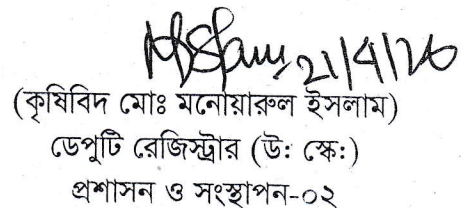 21/4/26
(কৃষিবিদ মোঃ মনোয়ারুল ইসলাম)
ডেপুটি রেজিস্ট্রার (উ: স্কে:)
প্রশাসন ও সংস্থাপন-০২